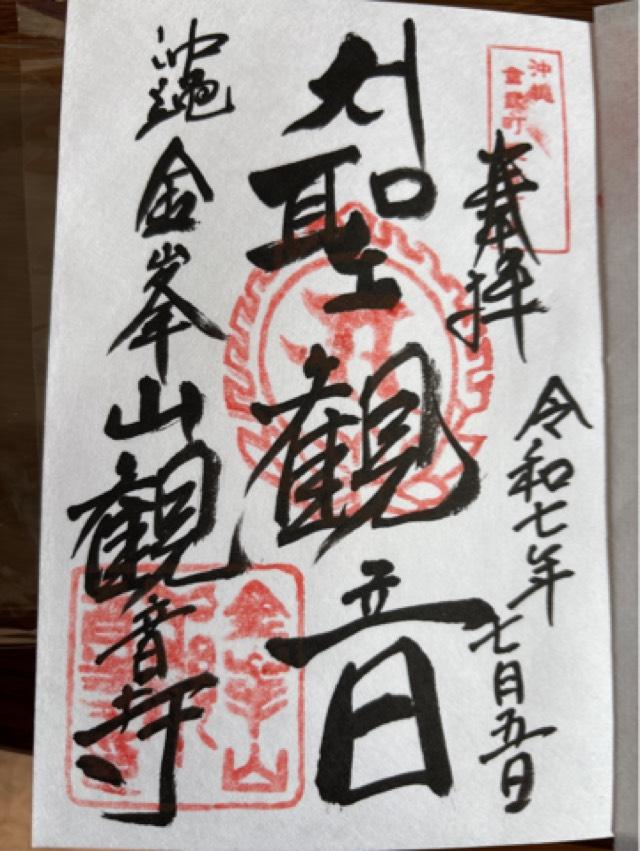 沖縄
金武町
奉拝
令和七年七月五日
聖観音
沖縄金峯山観音寺
金峯山